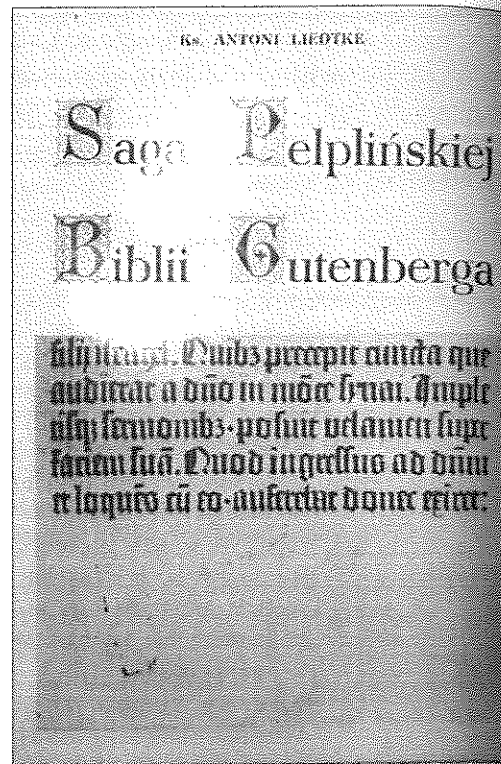 Ks. ANTONI LIEDTKE
Saga Pelplińskiej
Biblii Gutenberga
filij israel. Quibꝫ precepit cuncta que
audierat a dño in mõte synai. Imple
tisqꝫ sermonibꝫ·posuit velamen supe
faciem suã. Quod ingressus ad dñm
et loquẽs cũ eo·auferebat donec exiret: